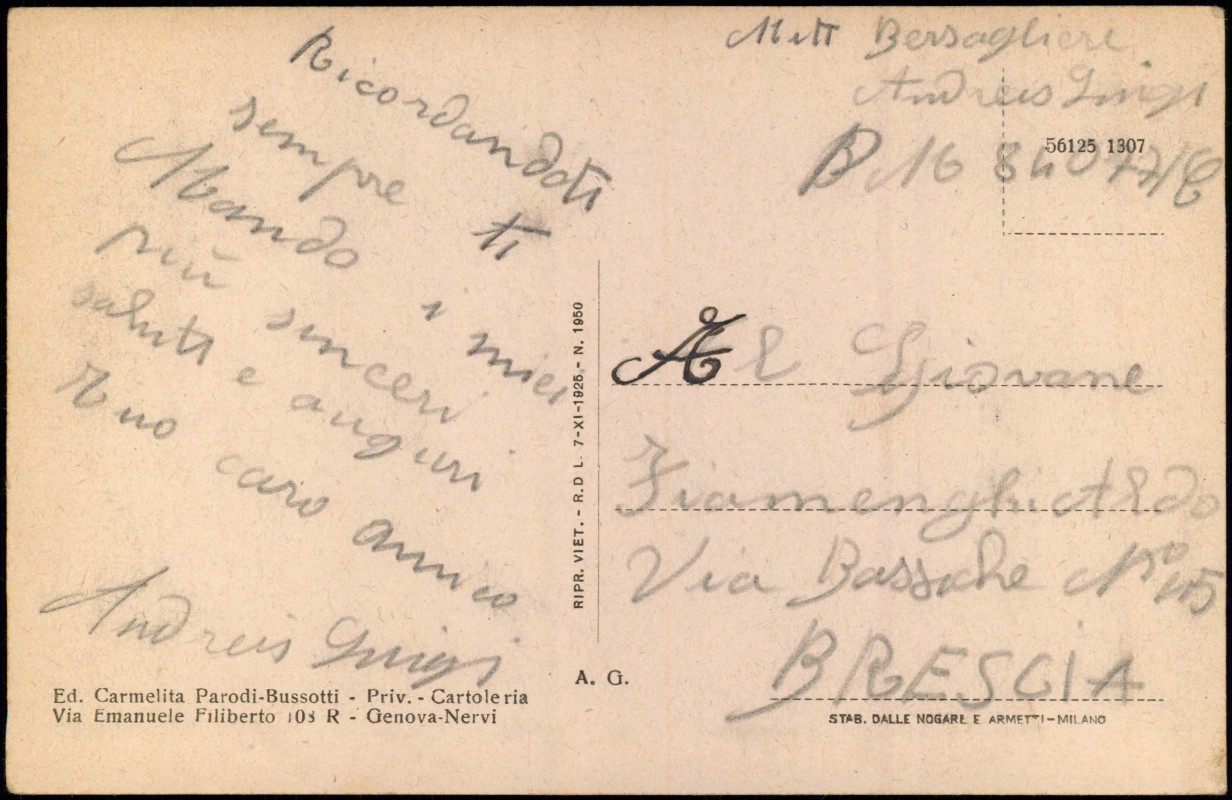 Ricordandoti
sempre ti
Mando i miei
più sinceri
saluti e auguri
tuo caro amico
Andreis Luigi
Ed. Carmelita Parodi-Bussotti - Priv. - Cartoleria
Via Emanuele Filiberto 103 R - Genova-Nervi
RIPR. VIET. - R.D L. 7-XI-1925 - N. 1950
A. G.
Mitt Bersagliere
Andreis Luigi
56125 1307
Al Giovane
Fiamenghi Aldo
Via Bassiche No
BRESCIA
STAB. DALLE NOGARE E ARMETTI - MILANO